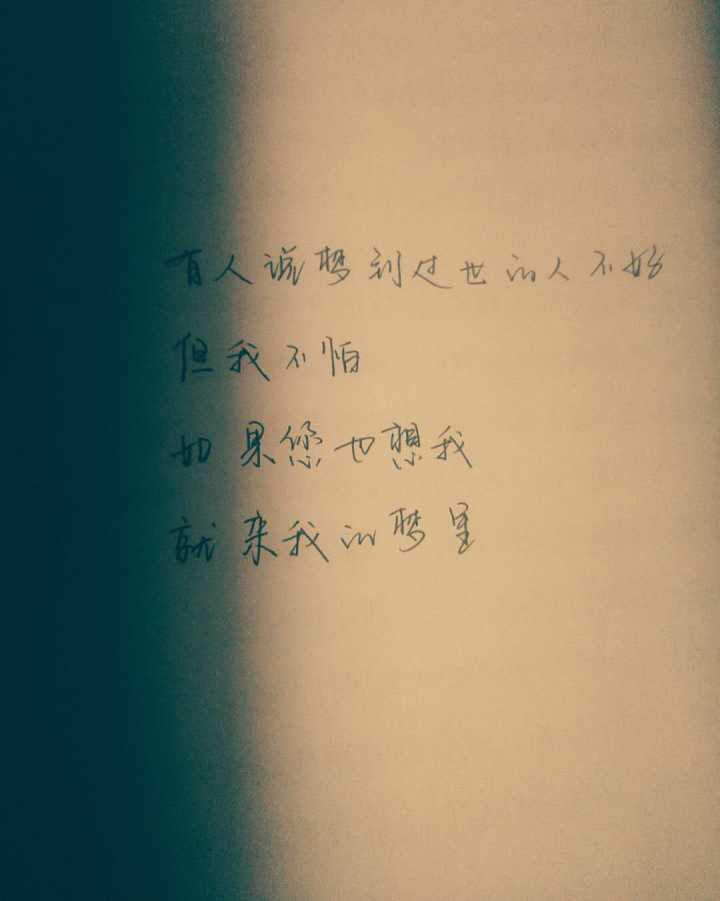 有人说梦到过世的人不好
但我不怕
如果您也想我
就来我的梦里